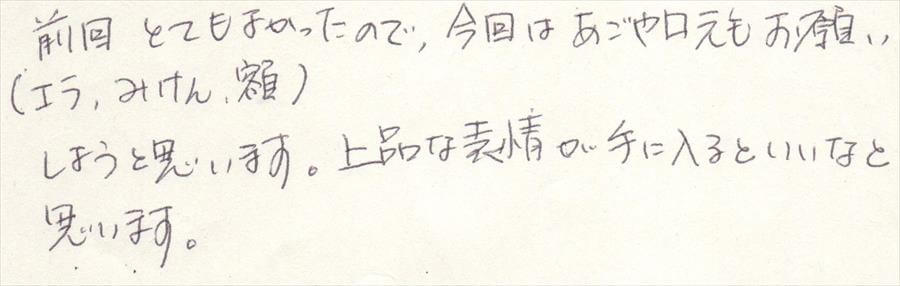 前回 とてもよかったので、今回は あごや口元も お願い
(エラ、みけん、額)
しようと思います。上品な表情が手に入るといいなと
思います。